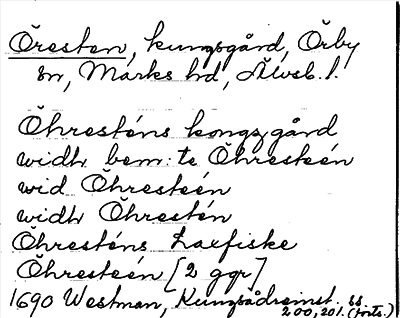 Öresten, kungsgård, Örby
sn, Marks hd, Älvsb. l.
Öhresténs kongzgård
widh bem:te Öhresteén
wid Öhresteén
widh Öhrestén
Öhresténs Laxfiske
Öhresteén [2 ggr]
1690 Westman, Kungsådreinst. ss
200, 201. (forts.)